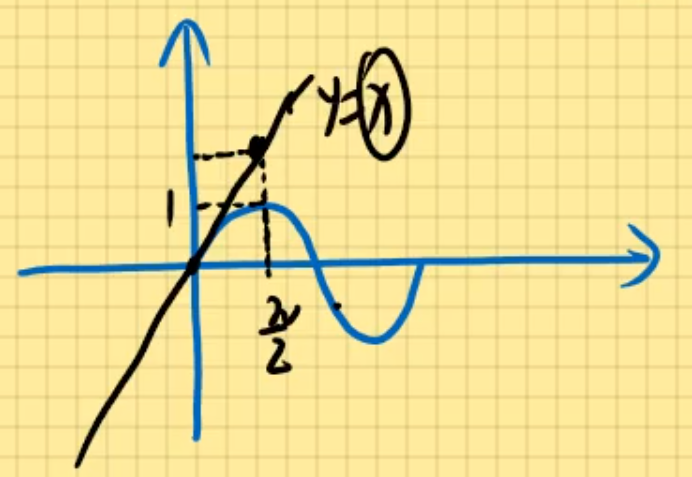 y=x
1
π/2